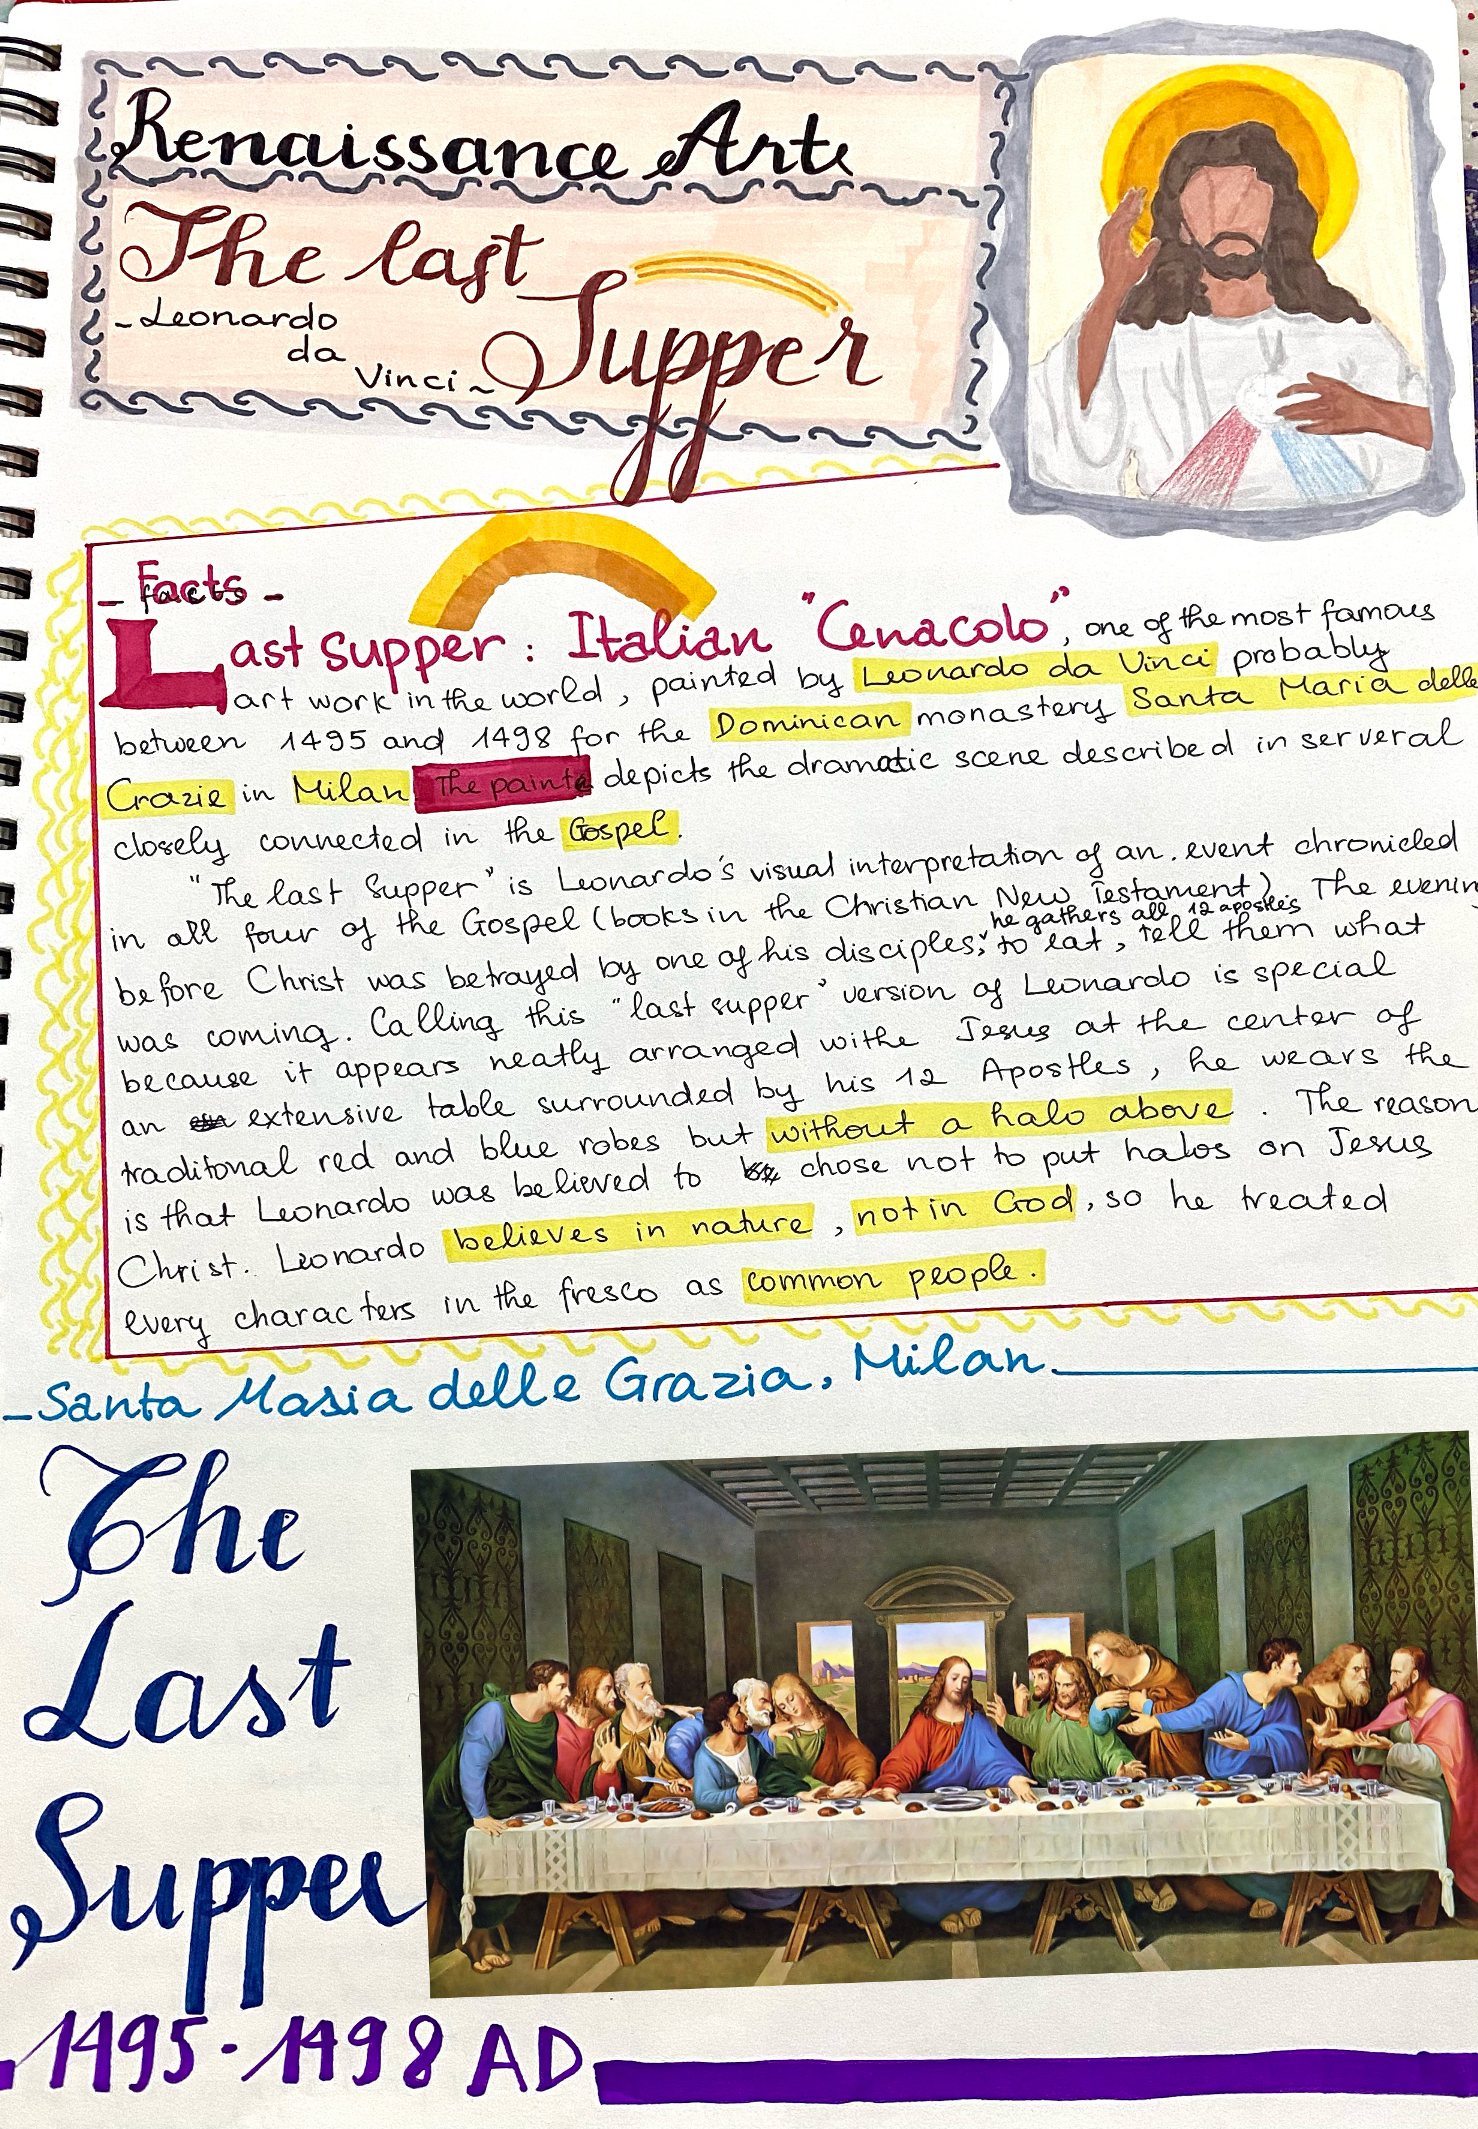 Renaissance Art
The last
Supper
- Leonardo
da
Vinci -
- Facts -
Last Supper : Italian "Cenacolo", one of the most famous
art work in the world, painted by Leonardo da Vinci probably
between 1495 and 1498 for the Dominican monastery Santa Maria delle
Grazie in Milan The paint depicts the dramatic scene described in serveral
closely connected in the Gospel.
"The last Supper" is Leonardo's visual interpretation of an . event chronicled
in all four of the Gospel (books in the Christian New Testament). The evenin
he gathers all 12 apostles
before Christ was betrayed by one of his disciples, to eat, tell them what
was coming. Calling this "last supper" version of Leonardo is special
because it appears neatly arranged withe Jesus at the center of
an extensive table surrounded by his 12 Apostles, he wears the
traditonal red and blue robes but without a halo above. The reason
is that Leonardo was believed to chose not to put halos on Jesus
Christ. Leonardo believes in nature, not in God, so he treated
every characters in the fresco as common people.
- Santa Masia delle Grazia, Milan.
The
Last
Supper
1495 - 1498 AD